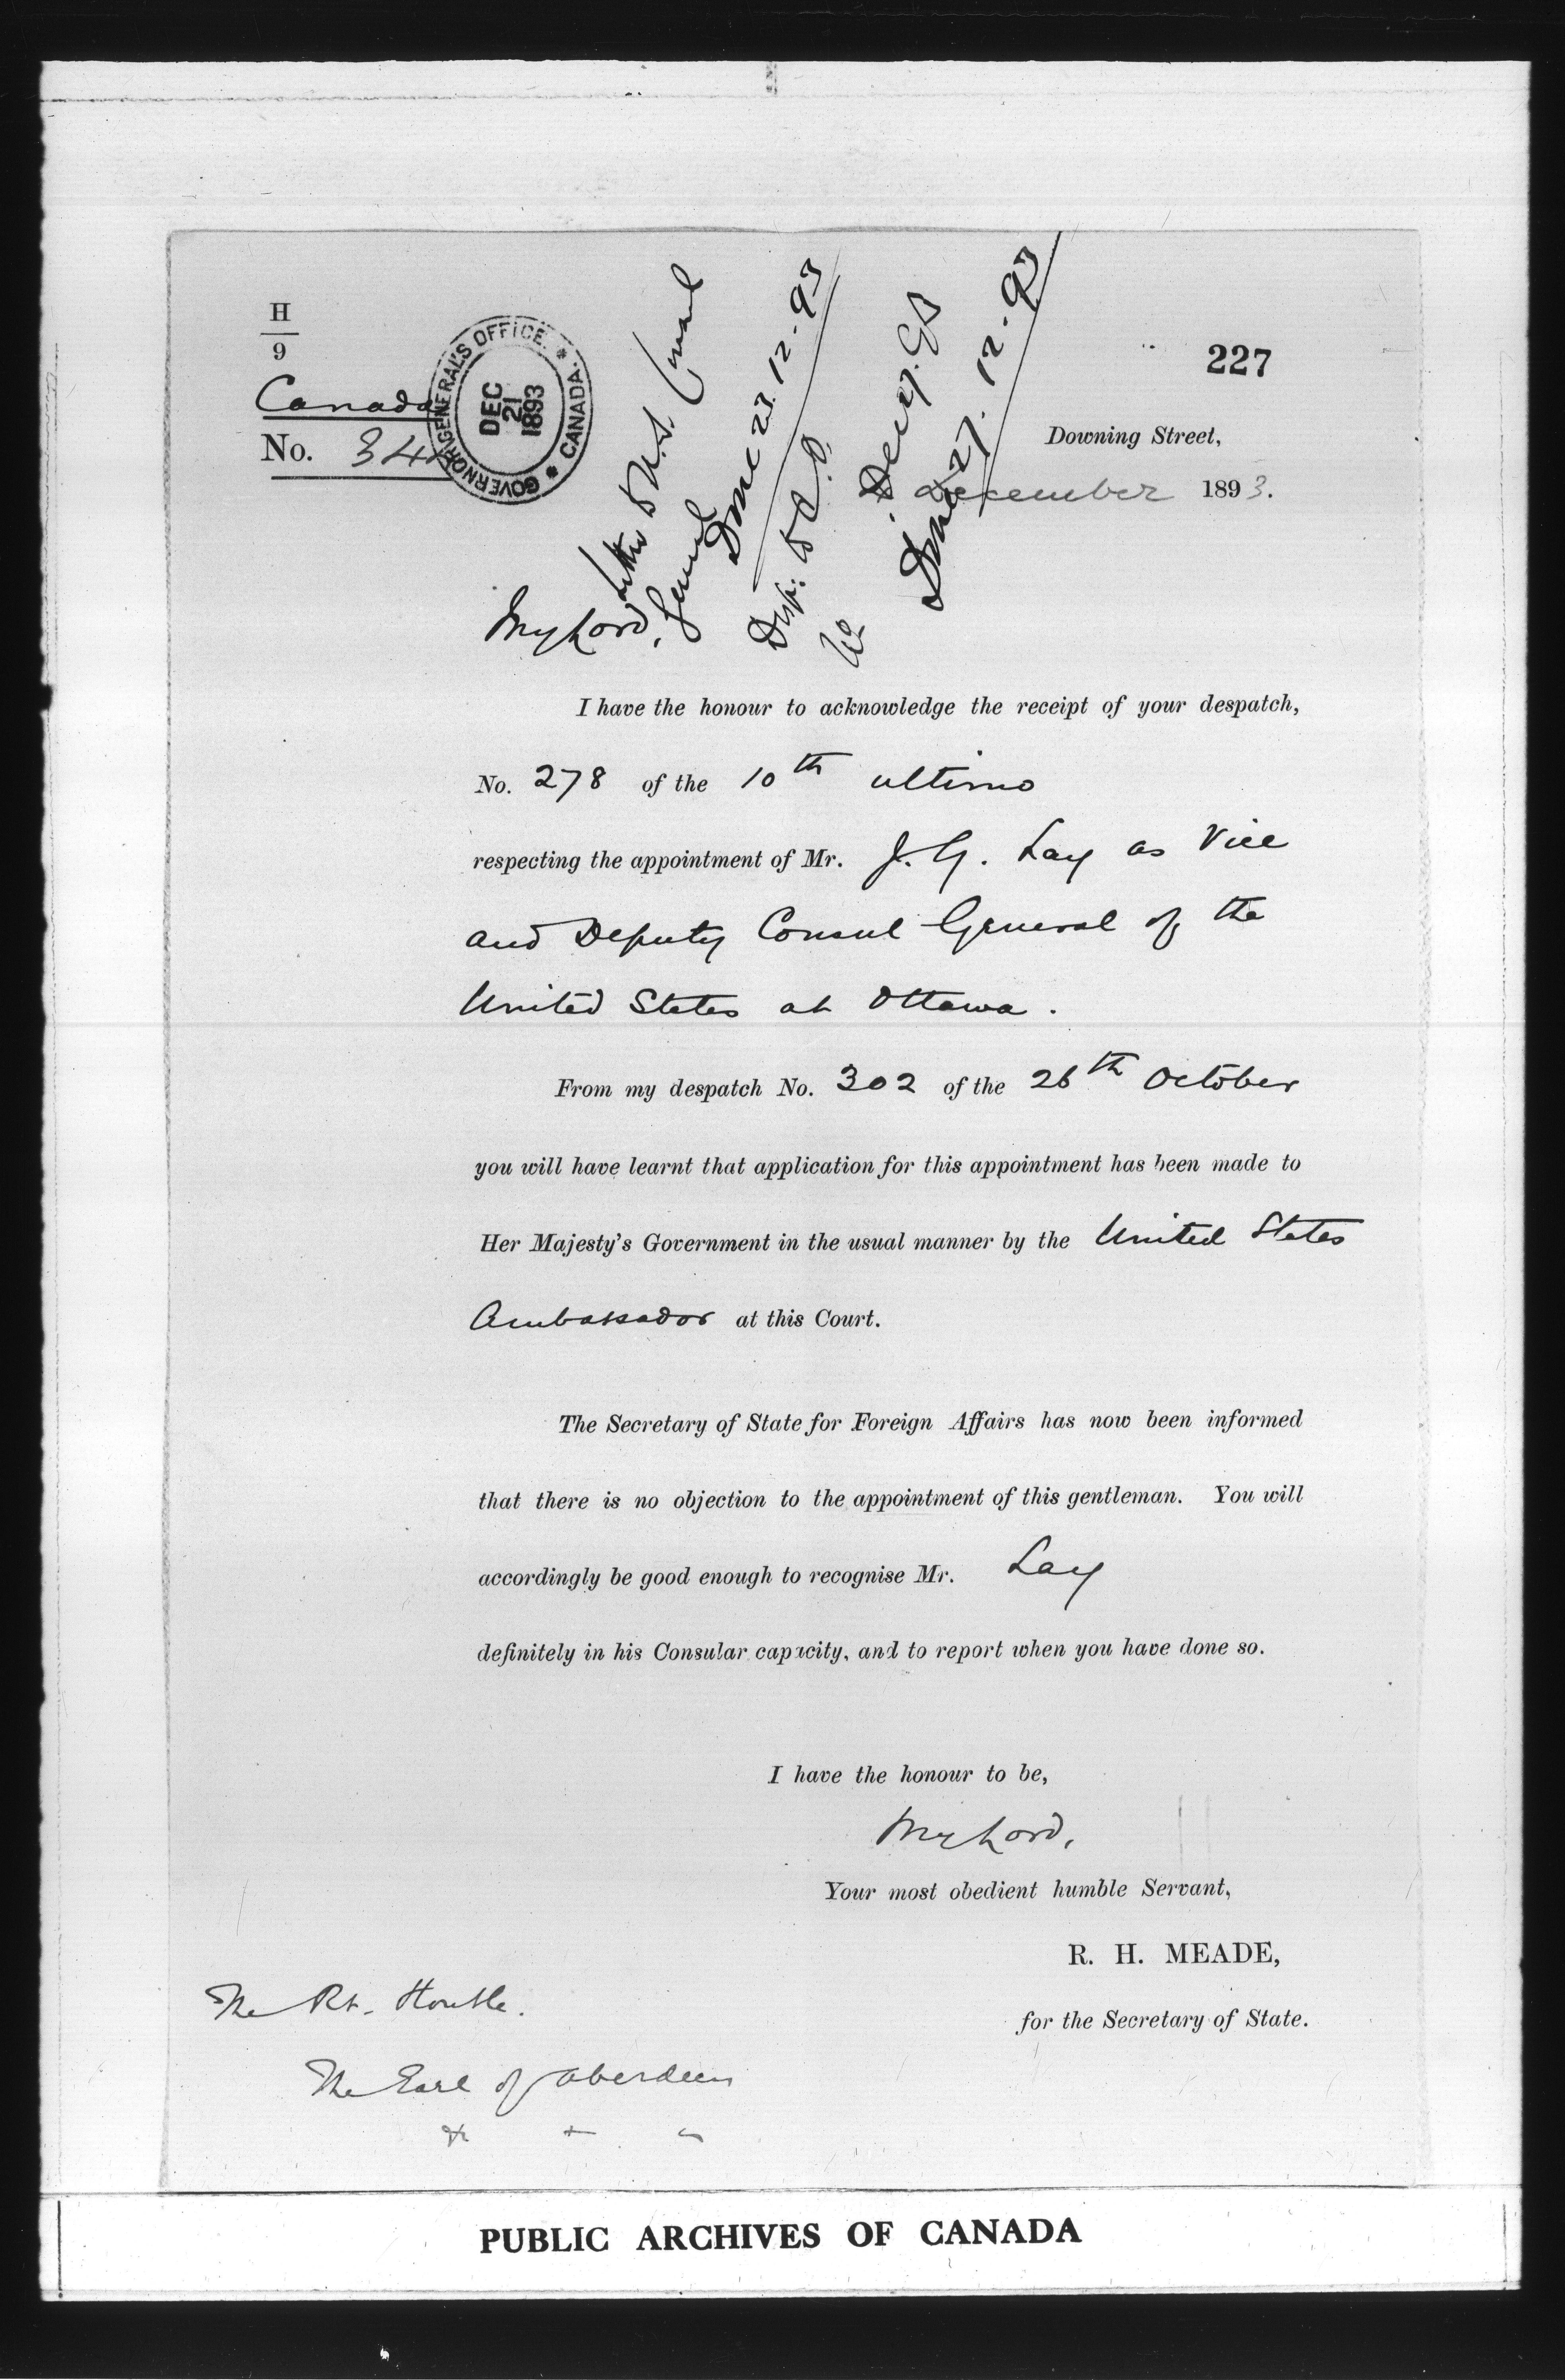 H
9
Canada
No. 34
GOVERNOR GENERAL'S OFFICE. * CANADA. *
DEC
21
1893
Letter to U.S. Consul
General
Done 23.12-93
Desp: to C.O.
Done 27.12-93
227
Downing Street,
December 1893.
My Lord,
I have the honour to acknowledge the receipt of your despatch,
No. 278 of the 10th ultimo
respecting the appointment of Mr. J. G. Lay as Vice
and Deputy Consul General of the
United States at Ottawa.
From my despatch No. 302 of the 26th October
you will have learnt that application for this appointment has been made to
Her Majesty's Government in the usual manner by the United States
Ambassador at this Court.
The Secretary of State for Foreign Affairs has now been informed
that there is no objection to the appointment of this gentleman. You will
accordingly be good enough to recognise Mr. Lay
definitely in his Consular capacity, and to report when you have done so.
I have the honour to be,
My Lord,
Your most obedient humble Servant,
R. H. MEADE,
for the Secretary of State.
The Rt. Honble.
The Earl of Aberdeen
PUBLIC ARCHIVES OF CANADA